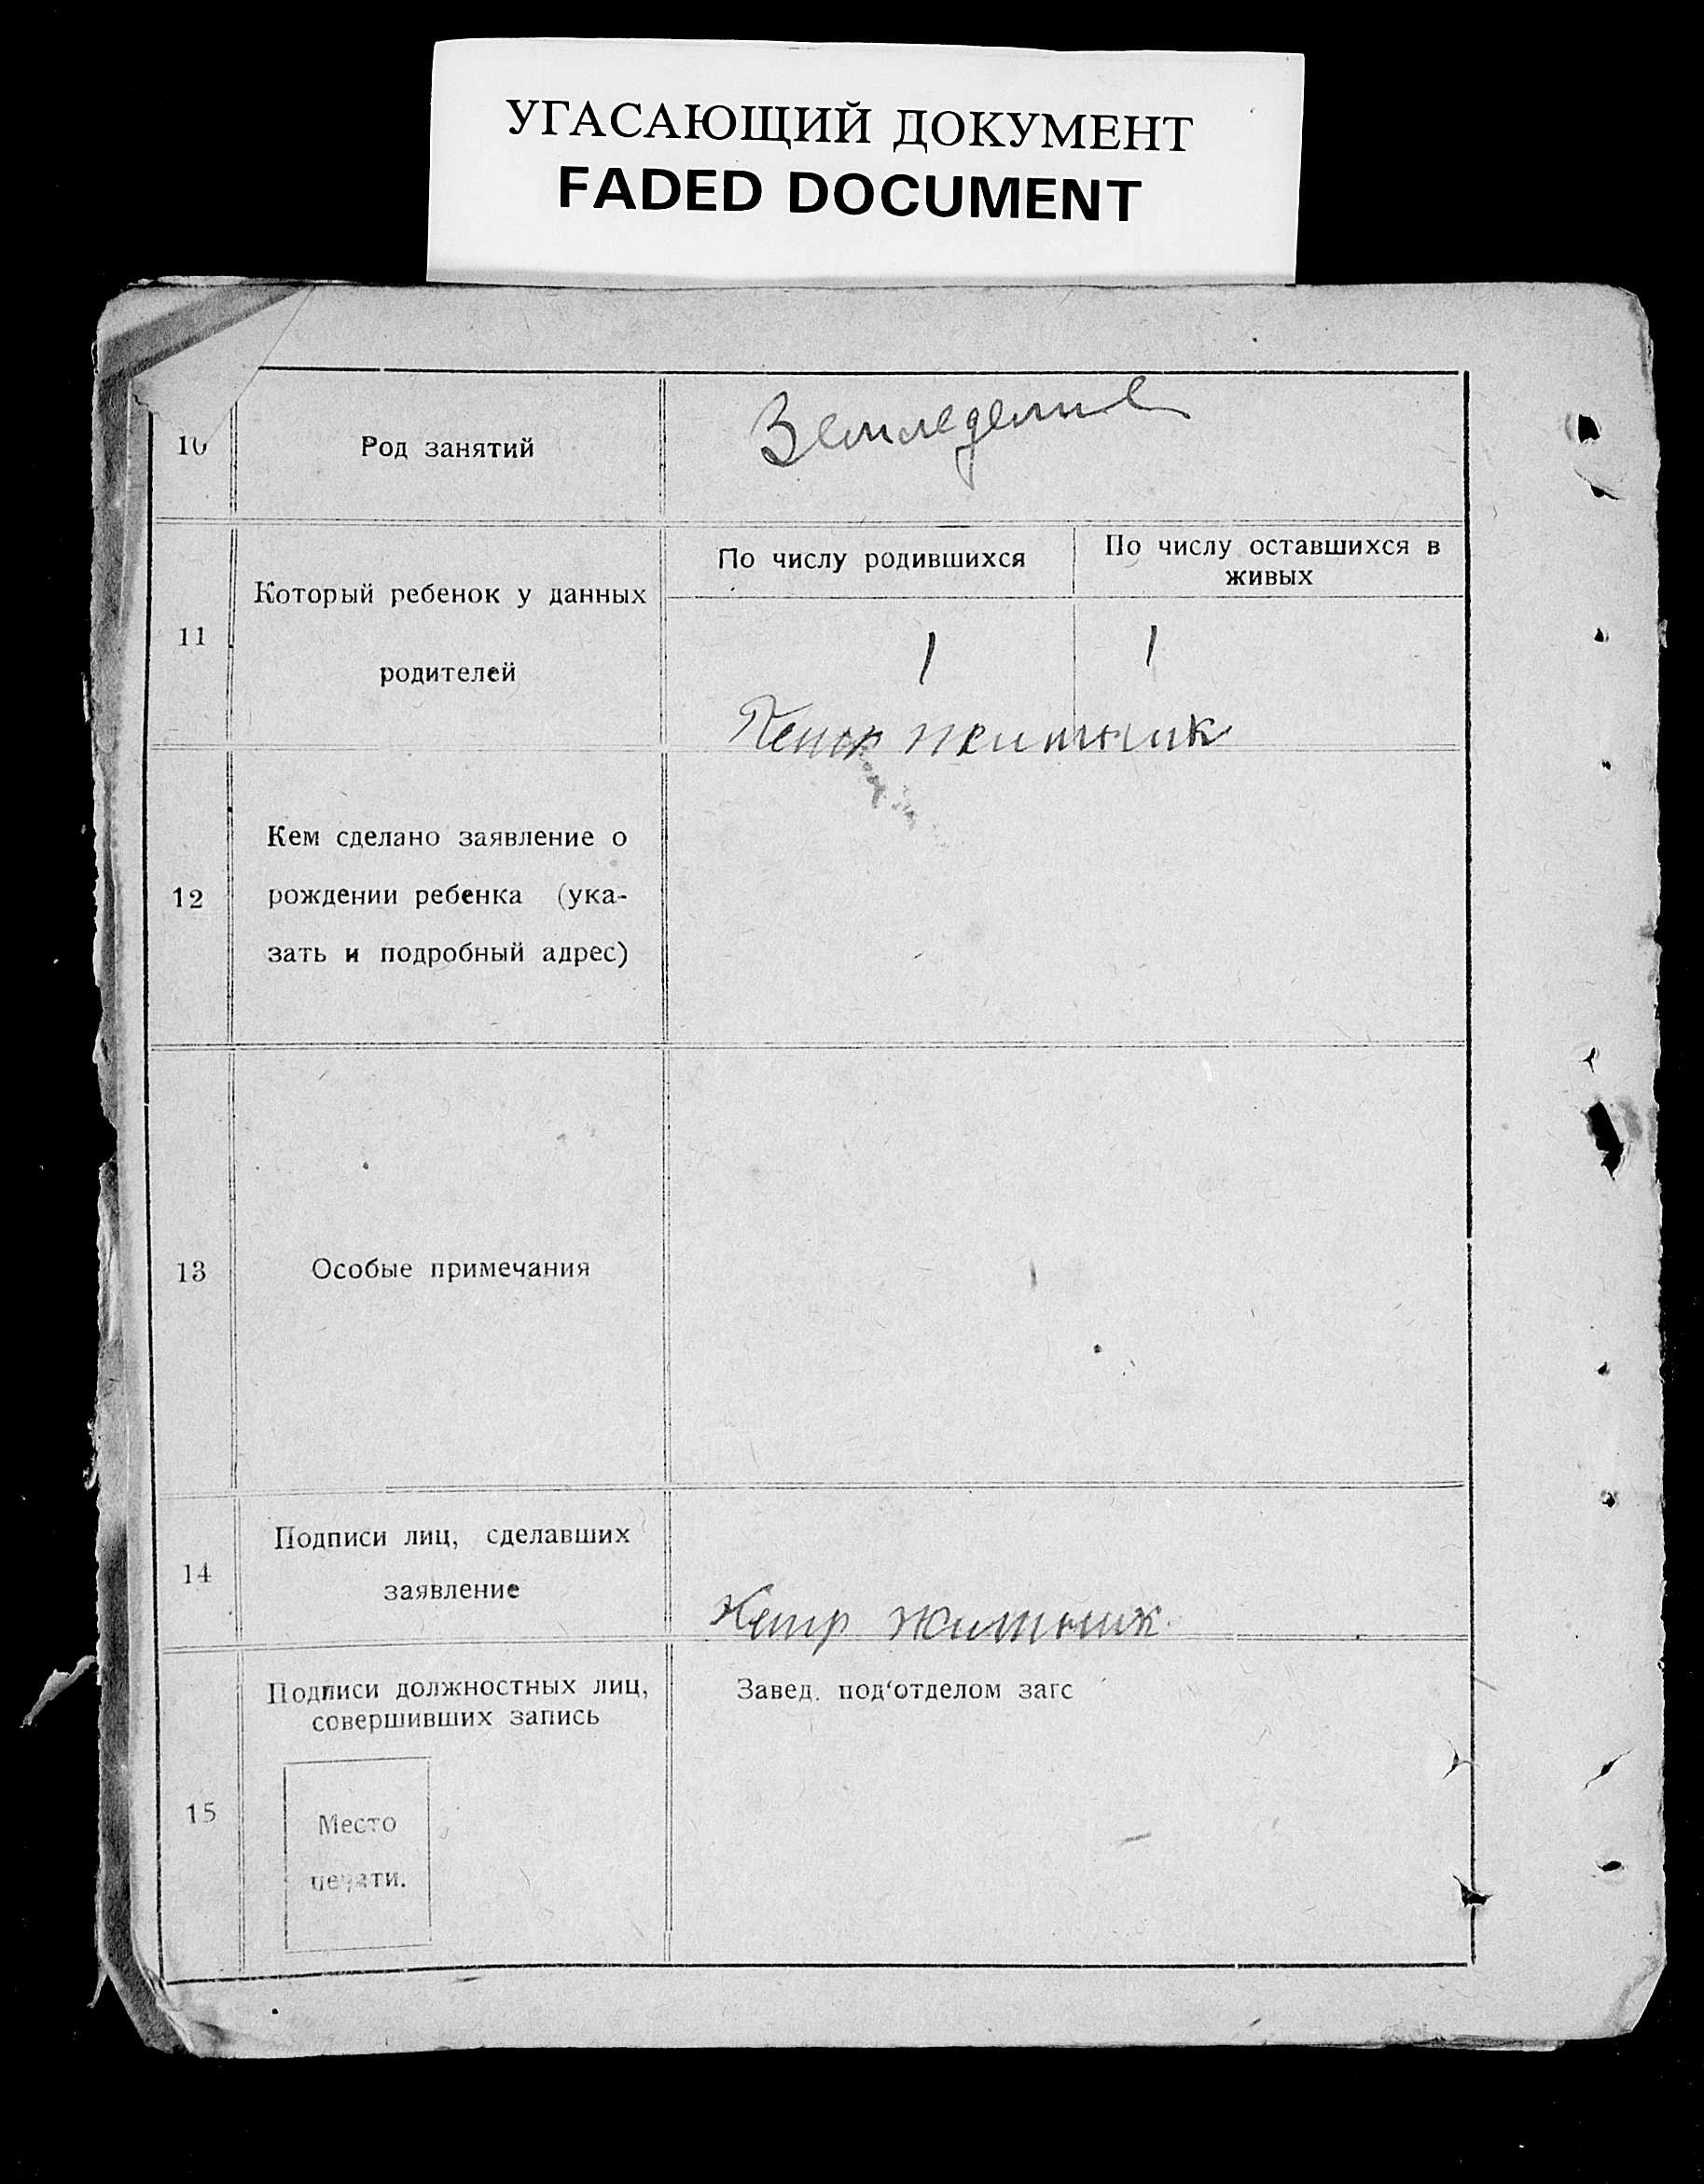 УГАСАЮЩИЙ ДОКУМЕНТ
FADED DOCUMENT
10
Род занятий
Земледелие
11
Который ребенок у данных
родителей
По числу родившихся
По числу оставшихся в
живых
1
1
Житник
12
Кем сделано заявление о
рождении ребенка (ука-
зать и подробный адрес)
13
Особые примечания
14
Подписи лиц, сделавших
заявление
Житник
15
Подписи должностных лиц,
совершивших запись
Место
печати.
Завед. под‘отделом загс